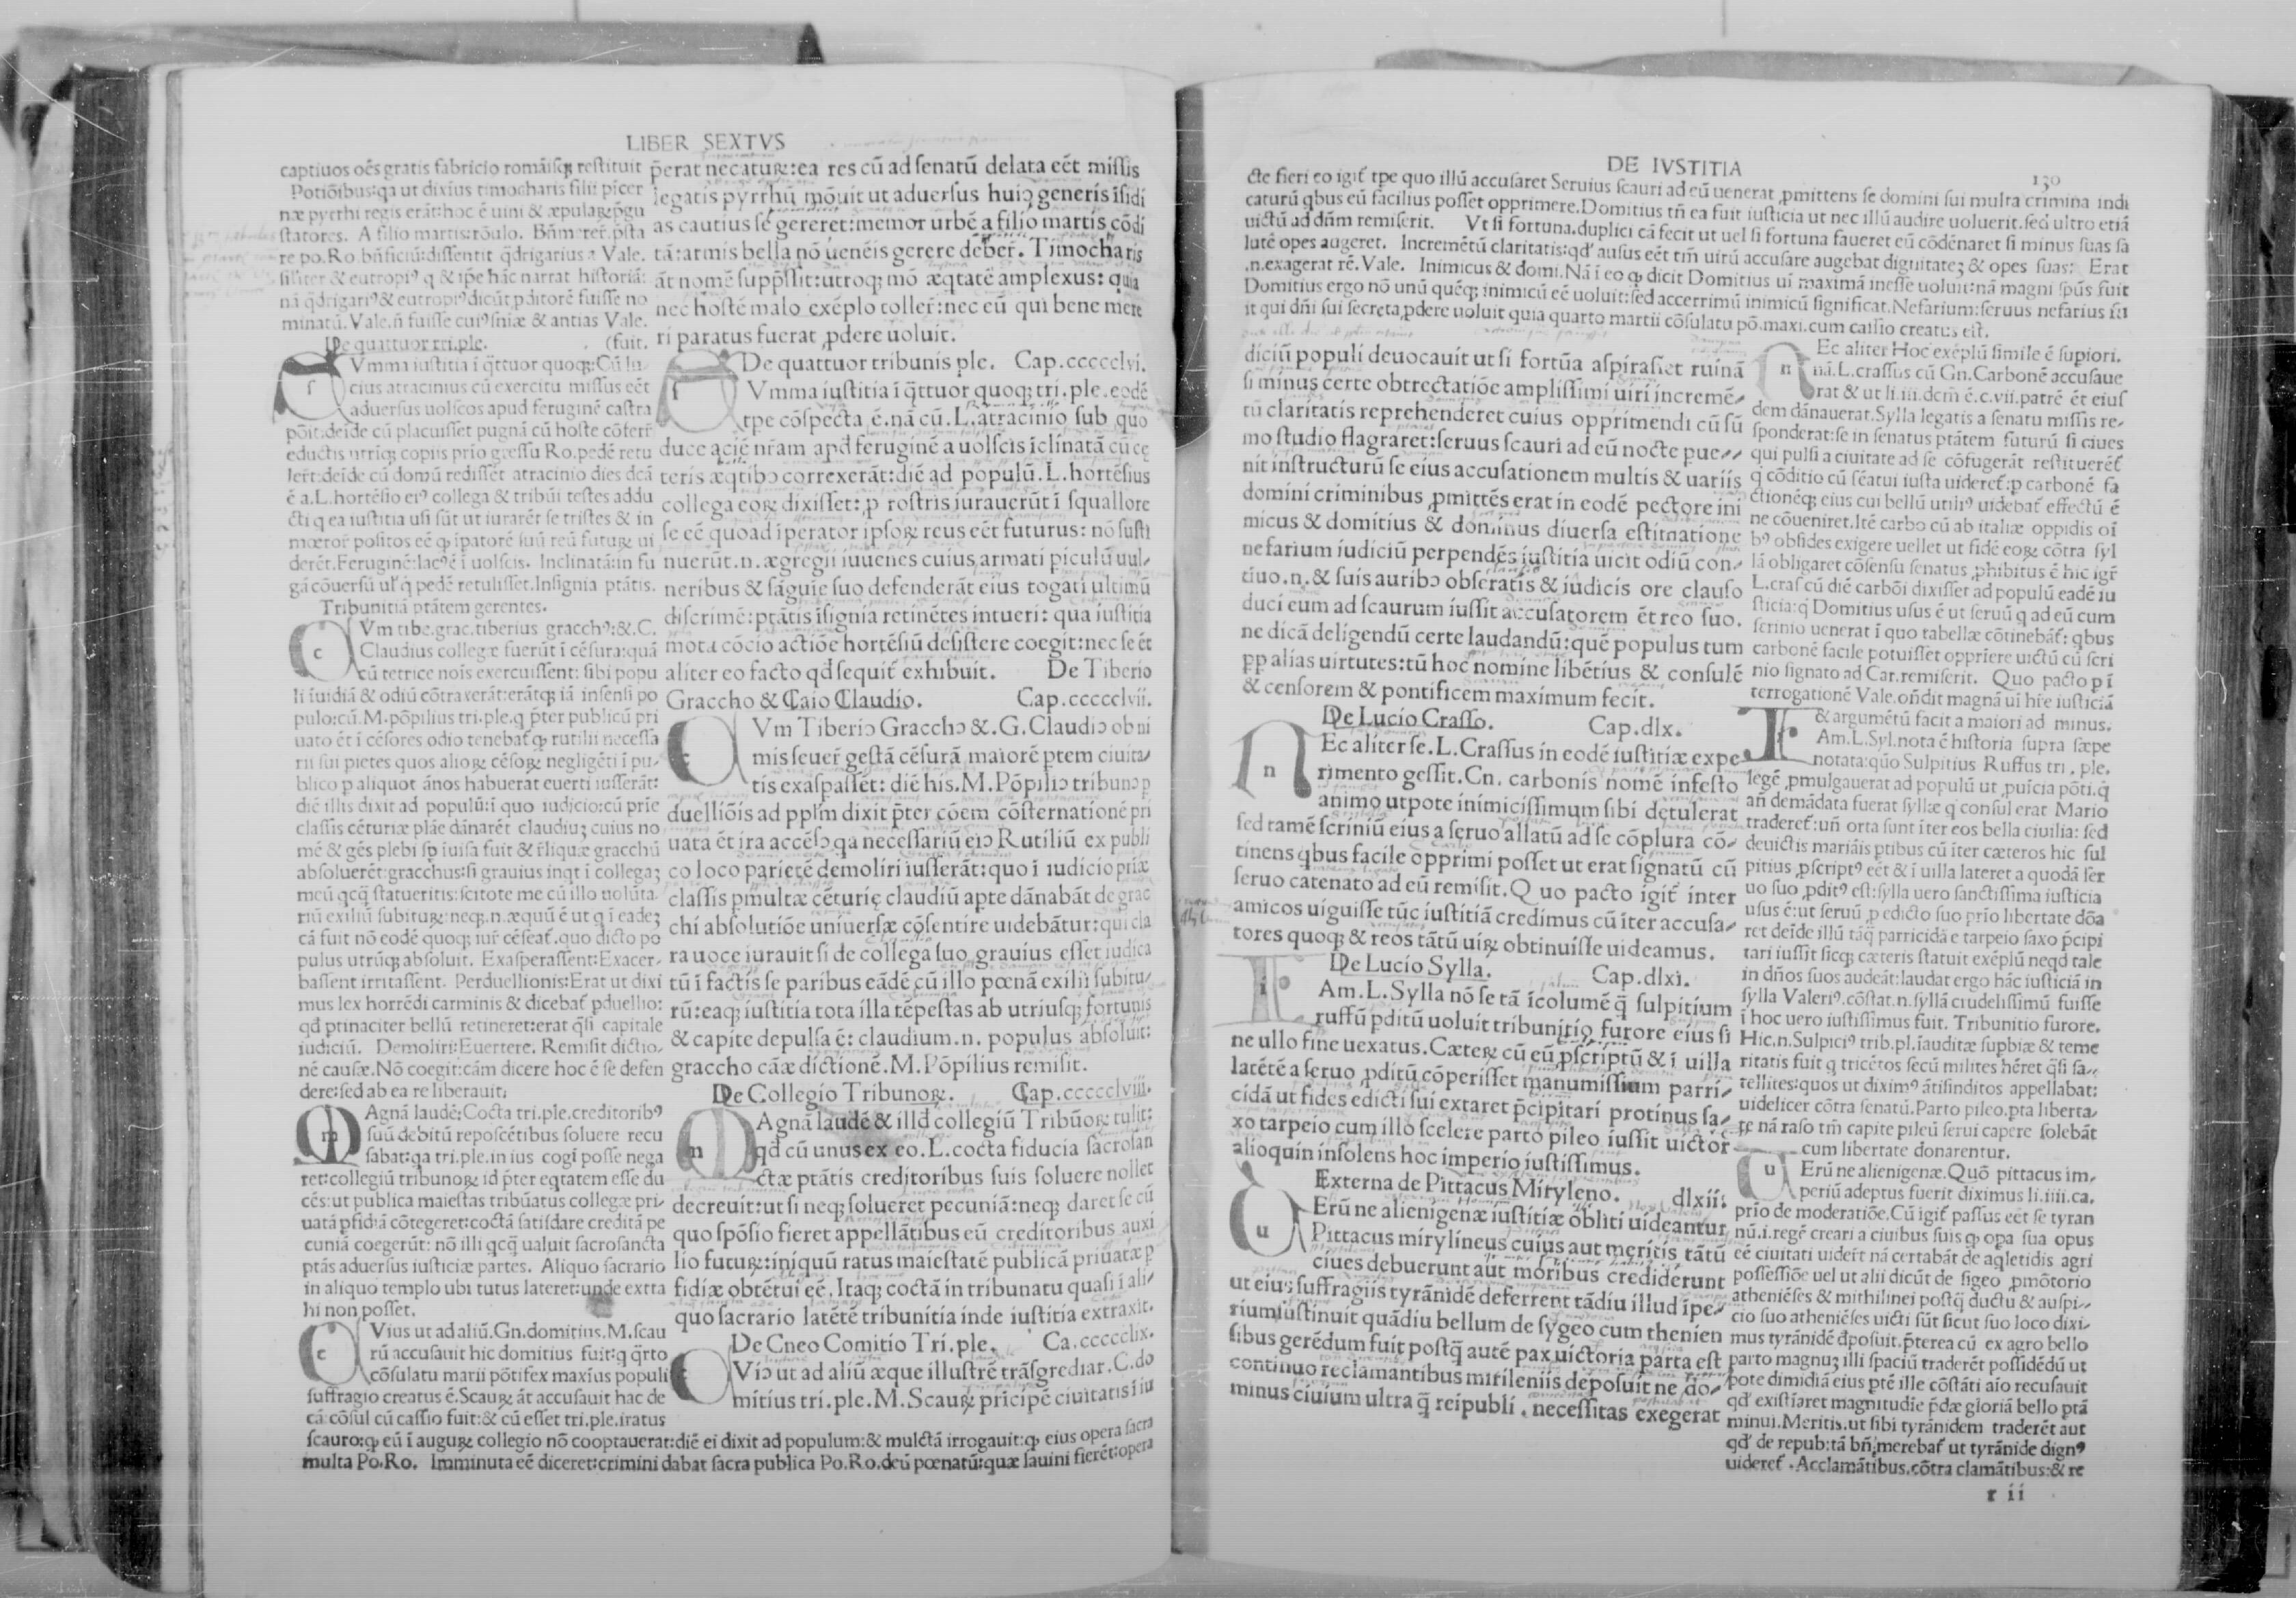 LIBER SEXTVS
captiuos oēs gratis fabricio romāisqꝫ restituit
Potiōibus:qa ut dixius timocharis filii pīcer
næ pyrrhi regis erāt:hoc ē uini & æpulaꝝ p̄gu
statores. A filio martis:rōulo. Bn̄meret̄. p̄sta
re po.Ro.bn̄ficiū:dissentit q̄drigarius a Vale.
siliter & eutropiꝰ q & ip̄e hāc narrat historiā:
nā q̄drigariꝰ & eutropiꝰ dicūt ꝓditorē fuisse no
minatū. Vale.n̄ fuisse cuiꝰ sniæ & antias Vale.
De quattuor tri.ple. (fuit.
sVmma iustitia ī q̄ttuor quoqꝫ:Cū lu-
cius atracinius cū exercitu missus eēt
aduersus uolscos apud feruginē castra
pōit:deīde cū placuisset pugnā cū hoste cōferr̄
eductis utriqꝫ copiis prio gressu Ro.pedē retu
lert̄:deīde cū domū redissēt atracinio dies dcā
ē a.L.hortēsio eiꝰ collega & tribūi testes addu
cti q ea iustitia usi sūt ut iurarēt se tristes & in
mœror̄ positos eē qꝫ ipatorē suū reū futuꝝ ui
derēt.Feruginē:lacꝰē ī uolscis. Inclinatā:in fu
gā cōuersū uꝉ q̄ pedē retulisset.Insignia ptātis.
Tribunitiā ptātem gerentes.
cVm tibe.grac.tiberius gracchꝰ:&.C.
Claudius collegæ fuerūt ī cēsura:quā
cū tetrice nōis exercuissent: sibi popu
li īuidiā & odiū cōtraxerāt:erātqꝫ iā infensi po
pulo:cū.M.pōpilius tri.ple.q p̄ter publicū pri
uato ēt ī cēsores odio tenebat̄ qꝫ rutilii necessa
rii sui pietes quos alioꝝ cēsoꝝ negligēti ī pu-
blico p aliquot ānos habuerat euerti iusserāt:
diē illis dixit ad populū:ī quo iudicio:cū prīe
classis cēturiæ plāe dānarēt claudiuꝫ cuius no
mē & gēs plebi sꝑ iuisa fuit & r̄liquæ gracchū
absoluerēt:gracchus:si grauius inqt ī collegaꝫ
meū qcq̄ statueritis:scitote me cū illo uolūta-
riū exiliū subituꝝ:neqꝫ.n.æquū ē ut q ī eadeꝫ
cā fuit nō eodē quoqꝫ iur̄ cēseat̄.quo dicto po
pulus utrūqꝫ absoluit. Exasperassent:Exacer-
bassent irritassent. Perduellionis:Erat ut dixi
mus lex horrēdi carminis & dicebat̄ ꝑduellio:
qđ ptinaciter bellū retineret:erat q̄si capitale
iudiciū. Demoliri:Euertere. Remisit dictio-
nē causæ.Nō coegit:cām dicere hoc ē se defen
dere:sed ab ea re liberauit:
mAgnā laudē:Cocta tri.ple.creditoribꝰ
suū debitū reposcētibus soluere recu
sabat:qa tri.ple.in ius cogī posse nega
ret:collegiū tribunoꝝ id p̄ter eqtatem esse du
cēs:ut publica maiestas tribūatus collegæ pri-
uatā pfidiā cōtegeret:coctā satisdare creditā pe
cuniā coegerūt: nō illi qcq̄ ualuit sacrosancta
ptās aduersus iusticiæ partes. Aliquo sacrario
in aliquo templo ubi tutus lateret:unde extra
hi non posset.
cVius ut ad aliū.Gn.domitius.M.scau
rū accusauit hic domitius fuit:q q̄rto
cōsulatu marii pōtifex maxīus populi
suffragio creatus ē.Scauꝝ āt accusauit hac de
cā cōsul cū cassio fuit:& cū esset tri.ple.iratus
scauro:qꝫ eū ī auguꝝ collegio nō cooptauerat:diē ei dixit ad populum:& mulctā irrogauit:qꝫ eius opera sacra
multa Po.Ro. Imminuta eē diceret:crimini dabat sacra publica Po.Ro.deū pœnatū:quæ lauini fierēt:opera
p̄erat necatuꝝ:ea res cū ad senatū delata eēt missis
legatis pyrrhū mōuit ut aduersus huiꝰ generis īsidi
as cautius se gereret:memor urbē a filio martis cōdi
tā:armis bella nō uenēis gerere debēr. Timocharis
āt nomē supp̄ssit:utroqꝫ mō æqtatē amplexus: quia
nec hostē malo exēplo toller̄:nec eū qui bene mere
ri paratus fuerat ꝓdere uoluit.
De quattuor tribunis ple. Cap.ccccclvi.
sVmma iustitia ī q̄ttuor quoqꝫ tri.ple.eodē
tpe cōspecta ē.nā cū.L.atracinio sub quo
duce aciē nr̄am apđ feruginē a uolscis īclinatā cū cę
teris æqtibꝰ correxerāt:diē ad populū.L.hortēsius
collega eoꝝ dixisset:ꝓ rostris iurauerūt ī squallore
se eē quoad iperator ipsoꝝ reus eēt futurus: nō susti
nuerūt.n.ægregii iuuenes cuius armati piculū uul-
neribus & sāguie suo defenderāt eius togati ultimū
discrimē:ptātis īsignia retinētes intueri: qua iustitia
mota cōcio actiōe hortēsiū desistere coegit:nec se ēt
aliter eo facto qđ sequit̄ exhibuit. De Tiberio
Graccho & Caio Claudio. Cap.ccccclvii.
cVm Tiberiꝰ Gracchꝰ &.G.Claudiꝰ ob ni
mis seuer̄ gestā cēsurā maiorē ptem ciuita-
tis exaspassēt: diē his.M.Pōpiliꝰ tribunꝰ p
duelliōis ad pplm̄ dixit p̄ter cōem cōsternationē pri
uata ēt ira accēsꝰ qa necessariū eiꝰ Rutiliū ex publi
co loco parietē demoliri iusserāt:quo ī iudicio priæ
classis pmultæ cēturię claudiū apte dānabāt de grac
chi absolutiōe uniuersæ cōsentire uidebātur:qui cla
ra uoce iurauit si de collega suo grauius esset iudica
tū ī factis se paribus eādē cū illo pœnā exilii subitu-
rū:eaqꝫ iustitia tota illa tēpestas ab utriusqꝫ fortunis
& capite depulsa ē: claudium.n. populus absoluit:
graccho cāæ dictionē.M.Pōpilius remisit.
De Collegio Tribunoꝝ. Cap.ccccclviii.
mAgnā laudē & illđ collegiū Tribūoꝝ tulit:
qđ cū unus ex eo.L.cocta fiducia sacrosan
ctæ ptātis creditoribus suis soluere nollet
decreuit:ut si neqꝫ solueret pecuniā:neqꝫ daret se cū
quo spōsio fieret appellātibus eū creditoribus auxi
lio futuꝝ:iniquū ratus maiestatē publicā priuatæ p
fidiæ obtētui eē. Itaqꝫ coctā in tribunatu quasi ī ali-
quo sacrario latētē tribunitia inde iustitia extraxit.
De Cneo Comitio Tri.ple. Ca.ccccclix.
cViꝰ ut ad aliū æque illustrē trāsgrediar.C.do
mitius tri.ple.M.Scauꝝ pricipē ciuitatis ī iu
DE IVSTITIA
130
cte fieri eo igit̄ tpe quo illū accusaret Seruius scauri ad eū uenerat ꝓmittens se domini sui multa crimina indi
caturū qbus eū facilius posset opprimere.Domitius tn̄ ea fuit iusticia ut nec illū audire uoluerit.sed ultro etiā
uictū ad dn̄m remiserit. Vt si fortuna.duplici cā fecit ut uel si fortuna faueret eū cōdēnaret si minus suas sa
lutē opes augeret. Incremētū claritatis:qđ ausus eēt tm̄ uirū accusare augebat dignitateꝫ & opes suas: Erat
.n.exagerat rē.Vale. Inimicus & domi.Nā ī eo qꝫ dicit Domitius ui maximā inesse uoluit:nā magni spūs fuit
Domitius ergo nō unū quēqꝫ inimicū eē uoluit:sed accerrimū inimicū significat.Nefarium:seruus nefarius fu
it qui dn̄i sui secreta ꝓdere uoluit quia quarto martii cōsulatu pō.maxi.cum cassio creatus est.
diciū populi deuocauit ut si fortūa aspirasset ruinā
si minus certe obtrectatiōe amplissimi uiri incremē-
tū claritatis reprehenderet cuius opprimendi cū sū
mo studio flagraret:seruus scauri ad eū nocte pue-
nit instructurū se eius accusationem multis & uariis
domini criminibus ꝓmittēs erat in eodē pectore ini
micus & domitius & dominus diuersa estimatione
nefarium iudiciū perpendēs iustitia uicit odiū con-
tiuo.n.& suis auribꝰ obseratis & iudicis ore clauso
duci eum ad scaurum iussit accusatorem ēt reo suo.
ne dicā deligendū certe laudandū:quē populus tum
pp alias uirtutes:tū hoc nomine libētius & consulē
& censorem & pontificem maximum fecit.
De Lucio Crasso. Cap.dlx.
nEc aliter se.L.Crassus in eodē iustitiæ expe
rimento gessit.Cn. carbonis nomē infesto
animo utpote inimicissimum sibi detulerat
sed tamē scriniū eius a seruo allatū ad se cōplura cō-
tinens qbus facile opprimi posset ut erat signatū cū
seruo catenato ad eū remisit.Quo pacto igit̄ inter
amicos uiguisse tūc iustitiā credimus cū iter accusa-
tores quoqꝫ & reos tātū uiꝝ obtinuisse uideamus.
De Lucio Sylla. Cap.dlxi.
iAm.L.Sylla nō se tā īcolumē q̄ sulpitium
ruffū ꝓditū uoluit tribunitio furore eius si
ne ullo fine uexatus.Cæteꝝ cū eū ꝓscriptū & ī uilla
latētē a seruo ꝓditū cōperisset manumissum parri-
cidā ut fides edicti sui extaret p̄cipitari protinus sa-
xo tarpeio cum illo scelere parto pileo iussit uictor̄
alioquin insolens hoc imperio iustissimus.
Externa de Pittacus Miryleno. dlxii:
uErū ne alienigenæ iustitiæ obliti uideantur
Pittacus mirylineus cuius aut meritis tātū
ciues debuerunt aut moribus crediderunt
ut eiusꝫ suffragiis tyrānidē deferrent tādiu illud īpe-
rium sustinuit quādiu bellum de sygeo cum thenien
sibus gerēdum fuit postq̄ autē pax uictoria parta est
continuo reclamantibus mitileniis deposuit ne do-
minus ciuium ultra q̄ reipubli . necessitas exegerat
nEc aliter Hoc exēplū simile ē supiori.
nā.L.crassus cū Gn.Carbonē accusaue
rat & ut li.iii.dcm̄ ē.c.vii.patrē ēt eius
dem dānauerat.Sylla legatis a senatu missis re-
sponderat:se in senatus ptātem futurū si ciues
qui pulsi a ciuitate ad se cōfugerāt restituerēt̄
q̄ cōditio cū sēatui iusta uideret̄:p carbonē fa
ctionēqꝫ eius cui bellū utiliꝰ uidebat̄ effectū ē
ne cōueniret.Itē carbo cū ab italiæ oppidis oī
bꝰ obsides exigere uellet ut fidē eoꝝ cōtra syl
lā obligaret cōsensu senatus ꝓhibitus ē hic igr̄
L.cras̄ cū diē carbōi dixisset ad populū eadē iu
sticia:q̄ Domitius usus ē ut seruū q ad eū cum
scrinio uenerat ī quo tabellæ cōtinebāt̄: qbus
carbonē facile potuisset opprīere uictū cū scri
nio signato ad Car.remiserit. Quo pacto p ī
terrogationē Vale.on̄dit magnā ui hr̄e iusticiā
& argumētū facit a maiori ad minus.
iAm.L.Syl.nota ē historia supra sæpe
notata:quō Sulpitius Ruffus tri . ple.
legē ꝓmulgauerat ad populū ut ꝓuīcia pōti.q̄
an̄ demādata fuerat syllæ q consul erat Mario
traderet̄:un̄ orta sunt īter eos bella ciuilia: sed
deuictis mariāis ptibus cū īter cæteros hic sul
pitius ꝓscriptꝰ eēt & ī uilla lateret a quodā ser
uo suo ꝓditꝰ est:sylla uero sanctissima iusticia
usus ē:ut seruū ꝓ edicto suo prīo libertate dōa
ret deīde illū tāq̄ parricidā e tarpeio saxo p̄cipi
tari iussit sicqꝫ cæteris statuit exēplū neqđ tale
in dn̄os suos audeāt:laudat ergo hāc iusticiā in
sylla Valeriꝰ.cōstat.n.syllā crudelissimū fuisse
ī hoc uero iustissimus fuit. Tribunitio furore.
Hic.n.Sulpiciꝰ trib.pl.īauditæ supbiæ & teme
ritatis fuit q tricētos secū milites hēret q̄si sa-
tellites:quos ut diximꝰ ātisīnditos appellabat:
uidelicer cōtra senatū.Parto pileo.pta liberta-
te nā raso tm̄ capite pileū serui capere solebāt
cum libertate donarentur.
uErū ne alienigenæ.Quō pittacus im-
periū adeptus fuerit diximus li.iiii.ca.
prio de moderatiōe.Cū igit̄ passus eēt se tyran
nū.i.regē creari a ciuibus suis qꝫ opa sua opus
eē ciuitati uider̄t nā certabāt de aqletidis agri
possessiōe uel ut alii dicūt de sigeo ꝓmōtorio
atheniēses & mithilinei postq̄ ductu & auspi-
cio suo atheniēses uicti sūt sicut suo loco dixi-
mus tyrānidē đposuit.p̄terea cū ex agro bello
parto magnuꝫ illi spaciū traderēt possidēdū ut
pote dimidiā eius ptē ille cōstāti aīo recusauit
qđ existīaret magnitudie p̄dæ gloriā bello ptā
minui.Meritis.ut sibi tyrānidem traderēt aut
qđ de repub:tā bn̄ merebat̄ ut tyrānide dignꝰ
uideret̄ .Acclamātibus.cōtra clamātibus:& re
r ii